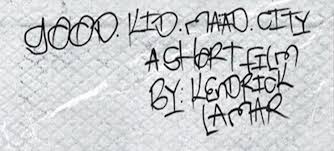 gOOD. KID. MAAD. CITY
A SHORT FILM
BY: KENDRICK
LAMAR